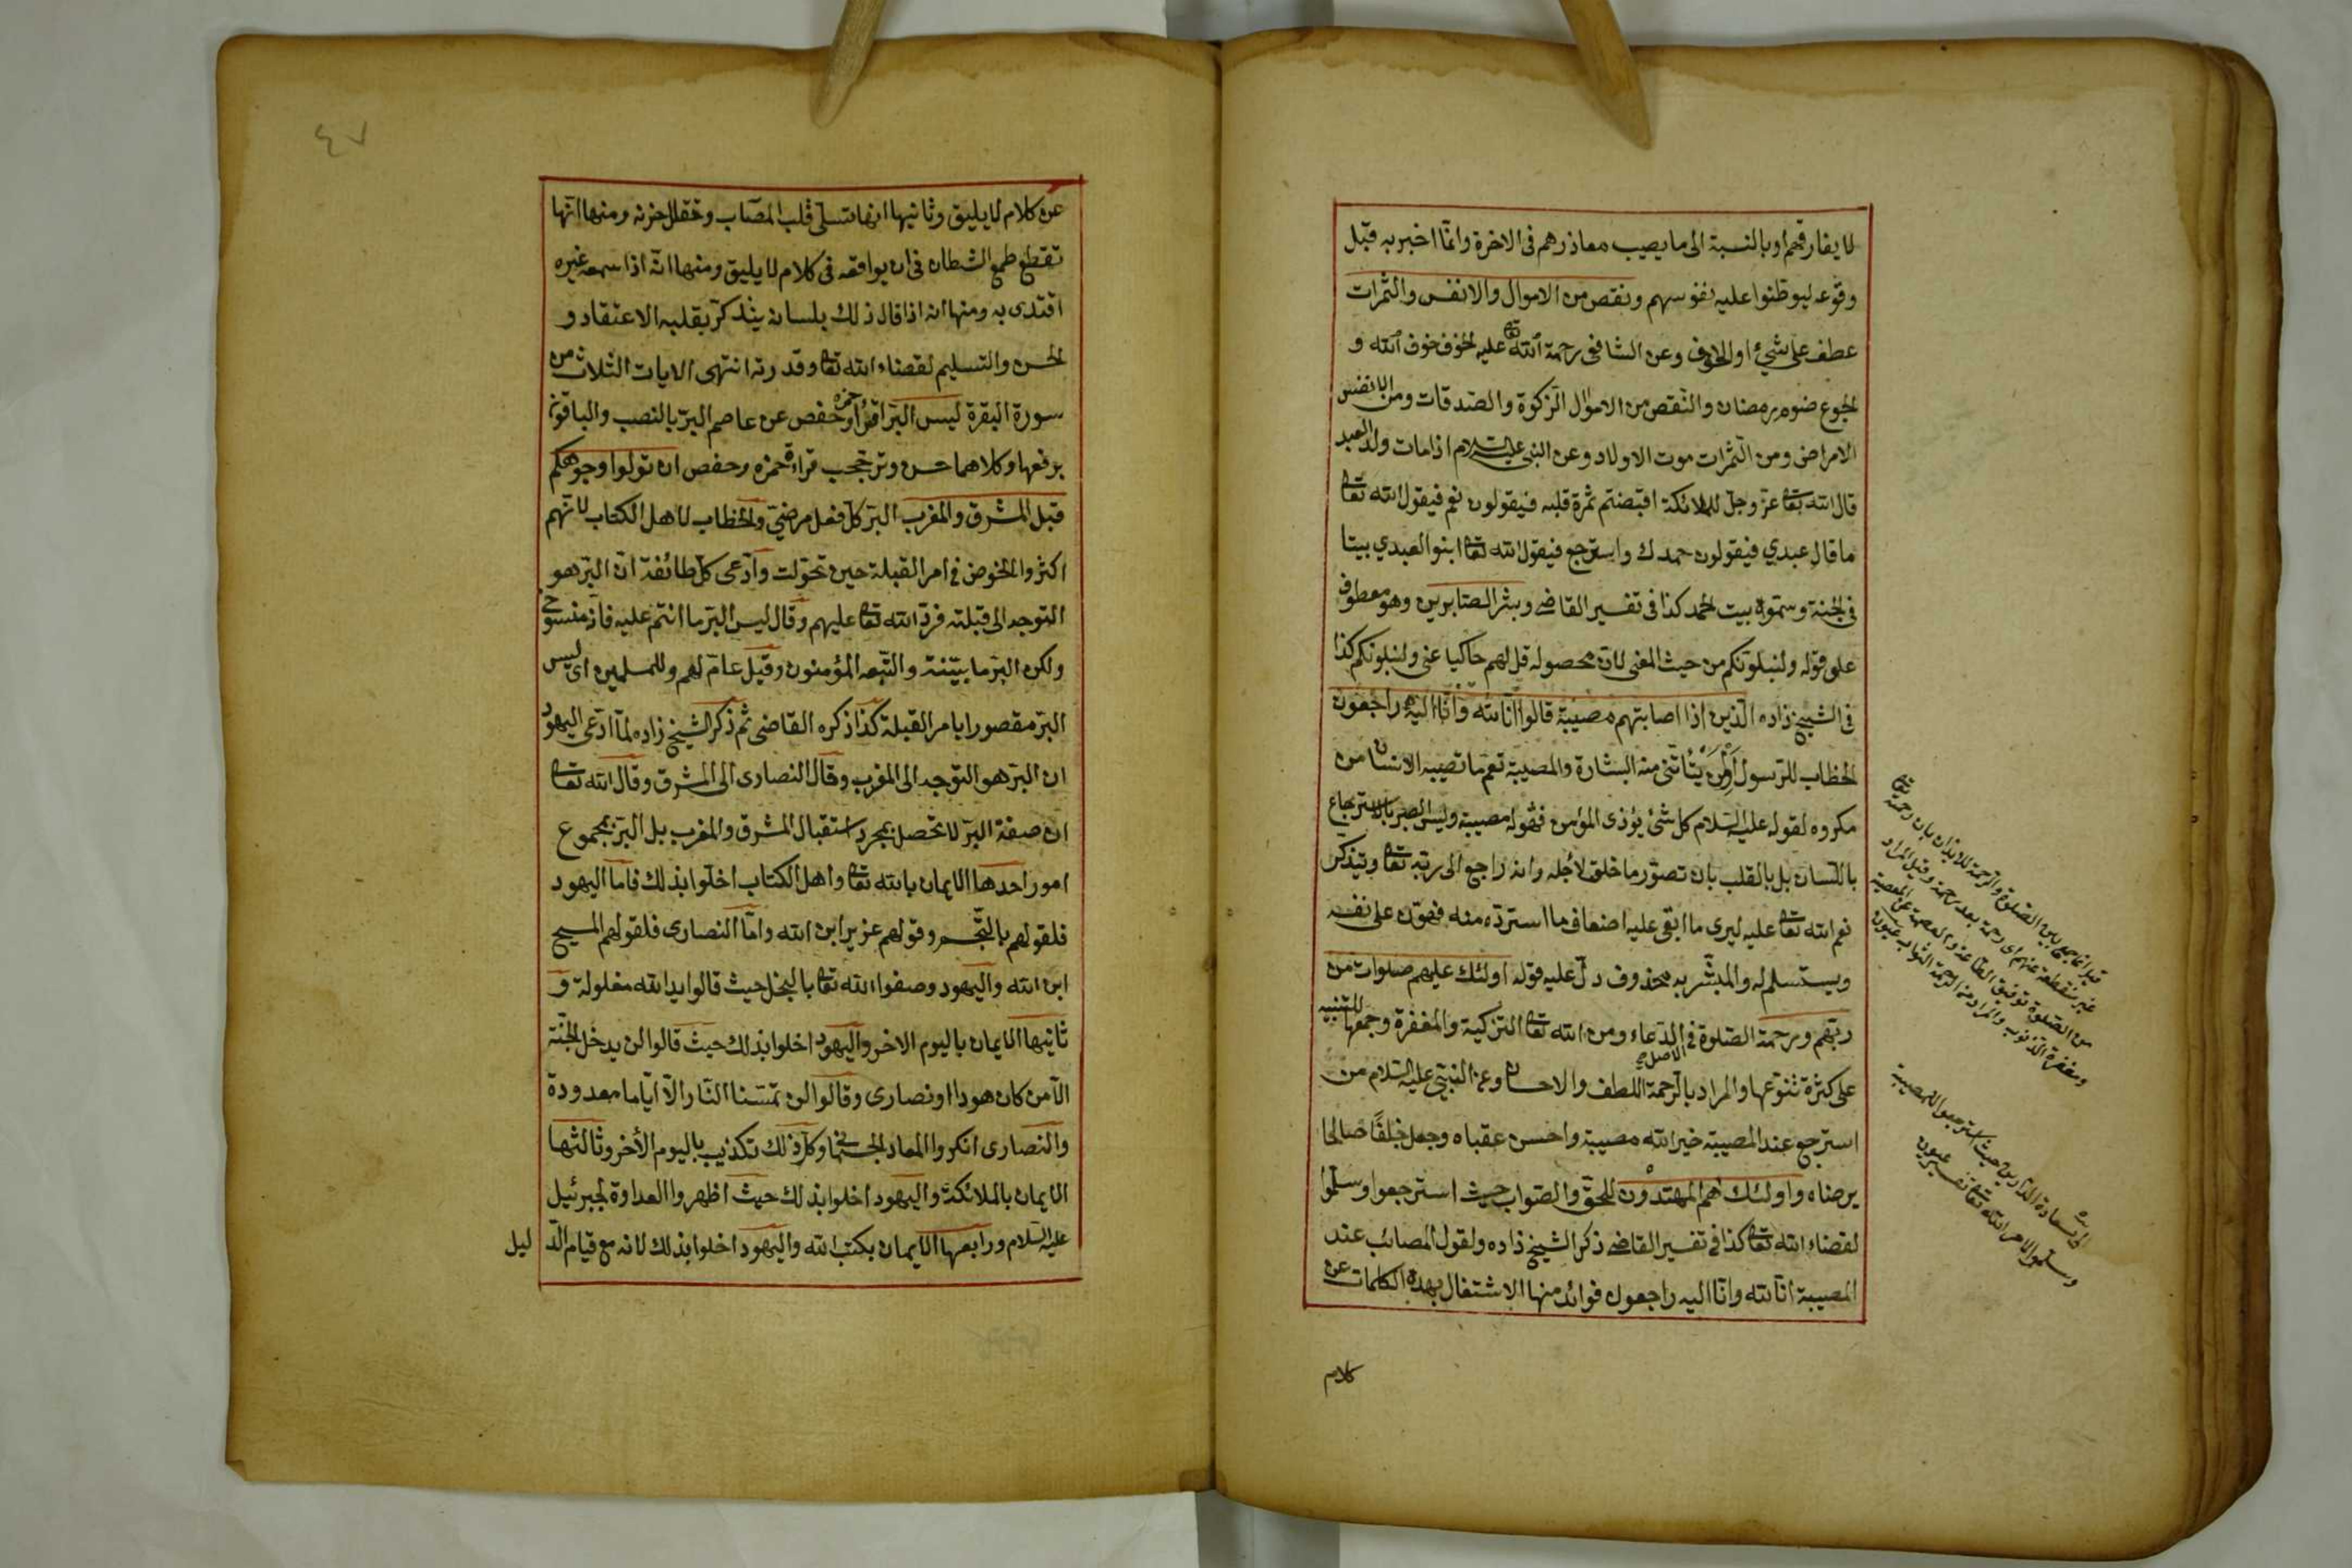 لا يفارقهم او بالنسبة الى ما يصيب معاذرهم فى الاخرة وانما اخبر به قبل
وقوعه ليوطنوا عليه نفوسهم ونقص من الاموال والانفس والثمرات
عطف على شئ او الخوف وعن الشافعى رحمة الله تعا عليه الخوف خوف الله و
الجوع صوم رمضان والنقص من الاموال الزكوة والصدقات ومن الانفس
الامراض ومن الثمرات موت الاولاد وعن النبى عليه السلام اذا مات ولد العبد
قال الله تعا عز وجل للملائكة اقبضتم ثمرة قلبه فيقولون نعم فيقول الله تعا
ما قال عبدي فيقولون حمدك واسترجع فيقول الله تعا ابنوا لعبدي بيتا
فى الجنة وسموه بيت الحمد كذا فى تفسير القاضى وبشر الصابرين وهو معطوف
على قوله ولنبلونكم من حيث المعنى لان محصوله قل لهم حاكيا عنى ولنبلونكم كذا
فى الشيخ زاده الذين اذا اصابتهم مصيبة قالوا انا لله وانا اليه راجعون
الخطاب للرسول اولمن يتأتى منه البشارة والمصيبة تعم ما تصيب الانسان من
مكروه لقوله عليه السلام كل شئ يؤذى المؤمن فهو له مصيبة وليس الصبر بالاسترجاع
باللسان بل بالقلب بان تصور ما خلق لاجله وانه راجع الى ربه تعا ويتذكر
نعم الله تعا عليه ليرى ما ابقى عليه اضعاف ما استرده منه فهون على نفسه
ويستسلم له والمبشر به محذوف دل عليه قوله اولئك عليهم صلوات من
ربهم ورحمة الصلوة فى الاصل الدعاء ومن الله تعا التزكية والمغفرة وجمعها للتنبيه
على كثرة تنوعها والمراد بالرحمة اللطف والاحسان وعن النبى عليه السلام من
استرجع عند المصيبة خير الله مصيبة واحسن عقباه وجعل خلفا صالحا
يرضاه واولئك هم المهتدون للحق والصواب حيث استرجعوا وسلموا
لقضاء الله تعا كذا فى تفسير القاضى ذكر الشيخ زاده ولقول المصائب عند
المصيبة انا لله وانا اليه راجعون فوائد منها الاشتغال بهذه الكلمات عن
كلام
ومغفرة الذنوب والمراد من الرحمة
حيث استرجعوا للمصيبة
وسلموا لامر الله تعا تفسير عيون
٤٧
عن كلام لا يليق وثانيها انها تسلى قلب المصاب وتقلل حزنه ومنها انها
تقطع طمع الشطان فى ان يوافقه فى كلام لا يليق ومنها انه اذا سمعه غيره
اقتدى به ومنها انه اذا قال ذلك بلسانه يتذكر بقلبه الاعتقاد و
الحسن والتسليم لقضاء الله تعا وقدرته انتهى الايات الثلاث من
سورة البقرة ليس البر اقرأ حمزه وحفص عن عاصم البر بالنصب والباقون
برفعها وكلاهما حسن وترجحب قراءة حمزه وحفص ان تولوا وجوهكم
قبل المشرق والمغرب البر كل فعل مرضى والخطاب لاهل الكتاب لانهم
اكثروا الخوض فى امر القبلة حين تحولت وادعى كل طائفة ان البر هو
التوجه الى قبلته فرد الله تعا عليهم وقال ليس البر ما انتم عليه فانه منسوخ
ولكن البر ما بيننه والتبعه المؤمنون وقيل عام لهم وللمسلمين اى ليس
البر مقصورا بامر القبلة كذا ذكره القاضى ثم ذكر الشيخ زاده لما ادعى اليهود
ان البر هو التوجه الى المغرب وقال النصارى الى المشرق وقال الله تعا
ان صفة البر لا تحصل بمجرد استقبال المشرق والمغرب بل البر بمجموع
امور احدها الايمان بالله تعا واهل الكتاب اخلوا بذلك فاما اليهود
فلقولهم بالتجسم وقولهم عزير ابن الله واما النصارى فلقولهم المسيح
ابن الله واليهود وصفوا الله تعا بالبخل حيث قالوا يد الله مغلولة و
ثانيها الايمان باليوم الاخر واليهود اخلوا بذلك حيث قالوا لن يدخل الجنة
الا من كان هودا او نصارى وقالوا لن تمسنا النار الا اياما معدودة
والنصارى انكروا المعاد الجسمانى وكل ذلك تكذيب باليوم الأخر وثالثها
الايمان بالملائكة واليهود اخلوا بذلك حيث اظهروا العداوة لجبرئيل
عليه السلام ورابعها الايمان بكتب الله واليهود اخلوا بذلك لانه مع قيام الد
ليل